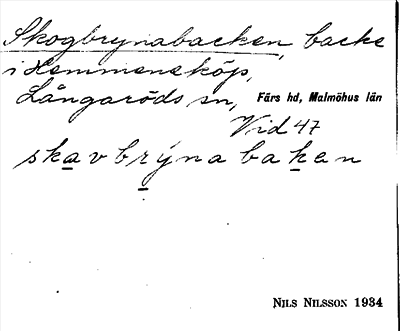 Skogbrynabacken, backe
i Hemmeneköp,
Långaröds sn, Färs hd, Malmöhus län
Vid 47
skavbrýnabaken
NILS NILSSON 1934